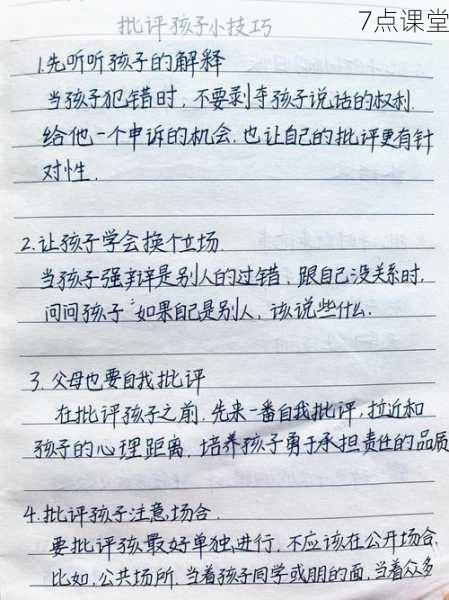 7点课堂
批评孩子小技巧
1.先听听孩子的解释
当孩子犯错时，不要剥夺孩子说话的权利.
给他一个申诉的机会.也让自己的批评更有针
对性.
2.让孩子学会换个立场.
当孩子强辩是别人的过错、跟自己没关系时.
问问孩子"如果自己是别人，该说些什么.
3.父母也要自我批评
在批评孩子之前.先来一番自我批评,拉近和
孩子的心理距离.培养孩子勇于承担责任的品质
4.批评孩子注意场合.
要批评孩最好单独进行.不应该在公开场合.
比如.公共场所.当着孩子同学或朋的面.当着众多